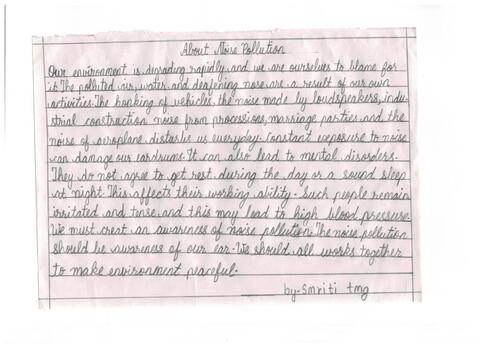 About Noise Pollution
Our environment is degrading rapidly, and we are ourselves to blame for
it. The polluted air, water, and deafening nose are a result of our own
activities. The honking of vehicles, the noise made by loudspeakers, indu-
strial construction noise from processions, marriage parties and the
noise of aeroplane distarbs us everyday. Constant exposure to noise
can damage our eardrums. It can also lead to mental disorders.
They do not agree to get rest during the day or a sound sleep
at night. This affects their working ability. Such people remain
irritated and tense, and this may lead to high blood pressure.
We must creat an awareness of noise pollution. The noise pollution
should be awareness of our ear. We should all works together
to make environment peaceful.
by-Smriti tmg